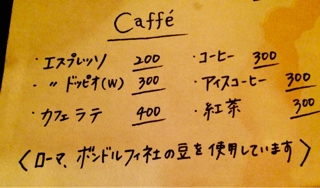 Caffé
・エスプレッソ 200
・〃 ドッピオ(W) 300
・カフェラテ 400
・コーヒー 300
・アイスコーヒー 300
・紅茶 300
〈ローマ、ボンドルフィ社の豆を使用しています〉